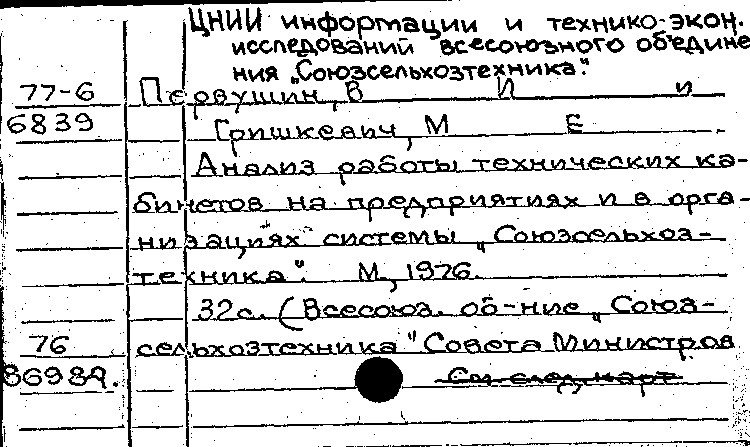 ЦНИИ информации и технико-экон.
исследований всесоюзного объедине
ния „Союзсельхозтехника".
77-6 Первушин, В И и
6839 Гришкевич, М Е .
Анализ работы технических ка-
бинетов на предприятиях и в орга-
низациях системы „Союзсельхоз-
техника". М., 1976.
32с. (Всесоюз. об-ние „Союз-
76 сельхозтехника" Совета Министров
86989. См. след. карт.